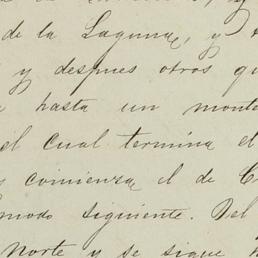 de la Laguna, y
y despues otros qu
hasta un monte
el cual termina el
comienza el de C
modo siguiente. Del
Norte y se sigue